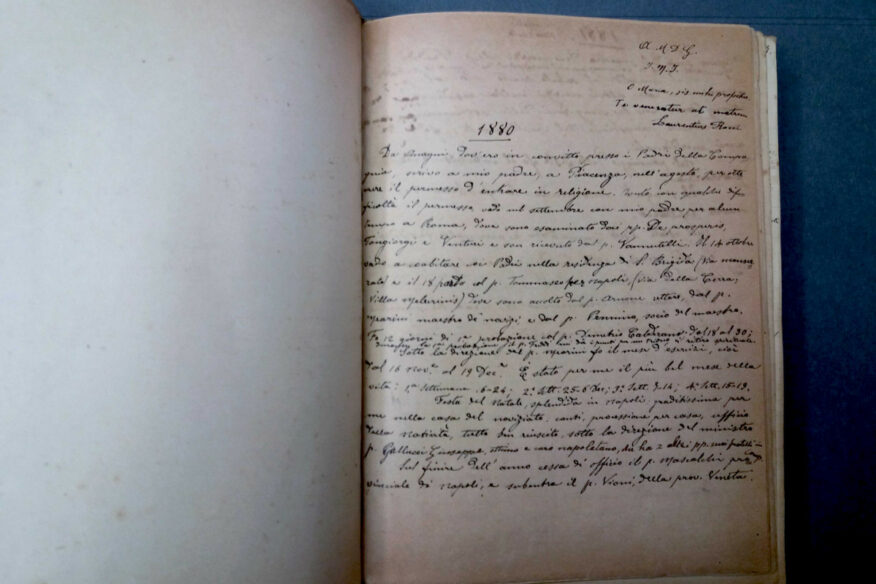 A M D G.
J. M. J.
O Maria, sis mihi propitia
Te veneratur ut matrem
Laurentius Rocci
1880
Da Anagni, dov'ero in convitto presso i Padri della Compa
gnia, scrivo a mio padre, a Piacenza, nell'agosto, per otte
nere il permesso d'entrare in religione. con qualche dif
ficoltà il permesso, vado nel settembre con mio padre per alcun
tempo a Roma, dove sono esaminato dai pp. De
Tongiorgi e Venturi e son ricevuto dal p. Vannutelli. Il 14 ottobre
vado a coabitare coi Padri nella residenza di S. Brigida (via
e il 18 parto col p. Tommaseo per Napoli (via della Cerra,
Villa) dove sono accolto dal p. rettore, dal p.
maestro di novizi e dal p. Pennino, socio del maestro.
Fo 12 giorni di 1ª probazione col p. Demetrio dal 18 al 30;
la 1ª probazione il p. un di ritiro spirituale.
Sotto la direzione del p. fo il mese d'esercizi, cioè
dal 16 Nov.e al 19 Dec.e È stato per me il più bel mese della
vita: 1ª settimana 16-24; 2ª Sett. 25-6 Dec; 3ª Sett. 4ª Sett. 15-19.
Festa del Natale, splendida in Napoli, graditissima per
me nella casa del noviziato, canti, processione per casa, ufficio
della natività, tutto ben riuscito, sotto la direzione del ministro
p. Gallucci Giuseppe, ottimo e caro napoletano, ha 2 altri pp. suoi fratelli
Sul finire dell'anno cessa di officio il p. pro
vinciale di Napoli, e subentra il p. Vioni, della prov. Veneta.